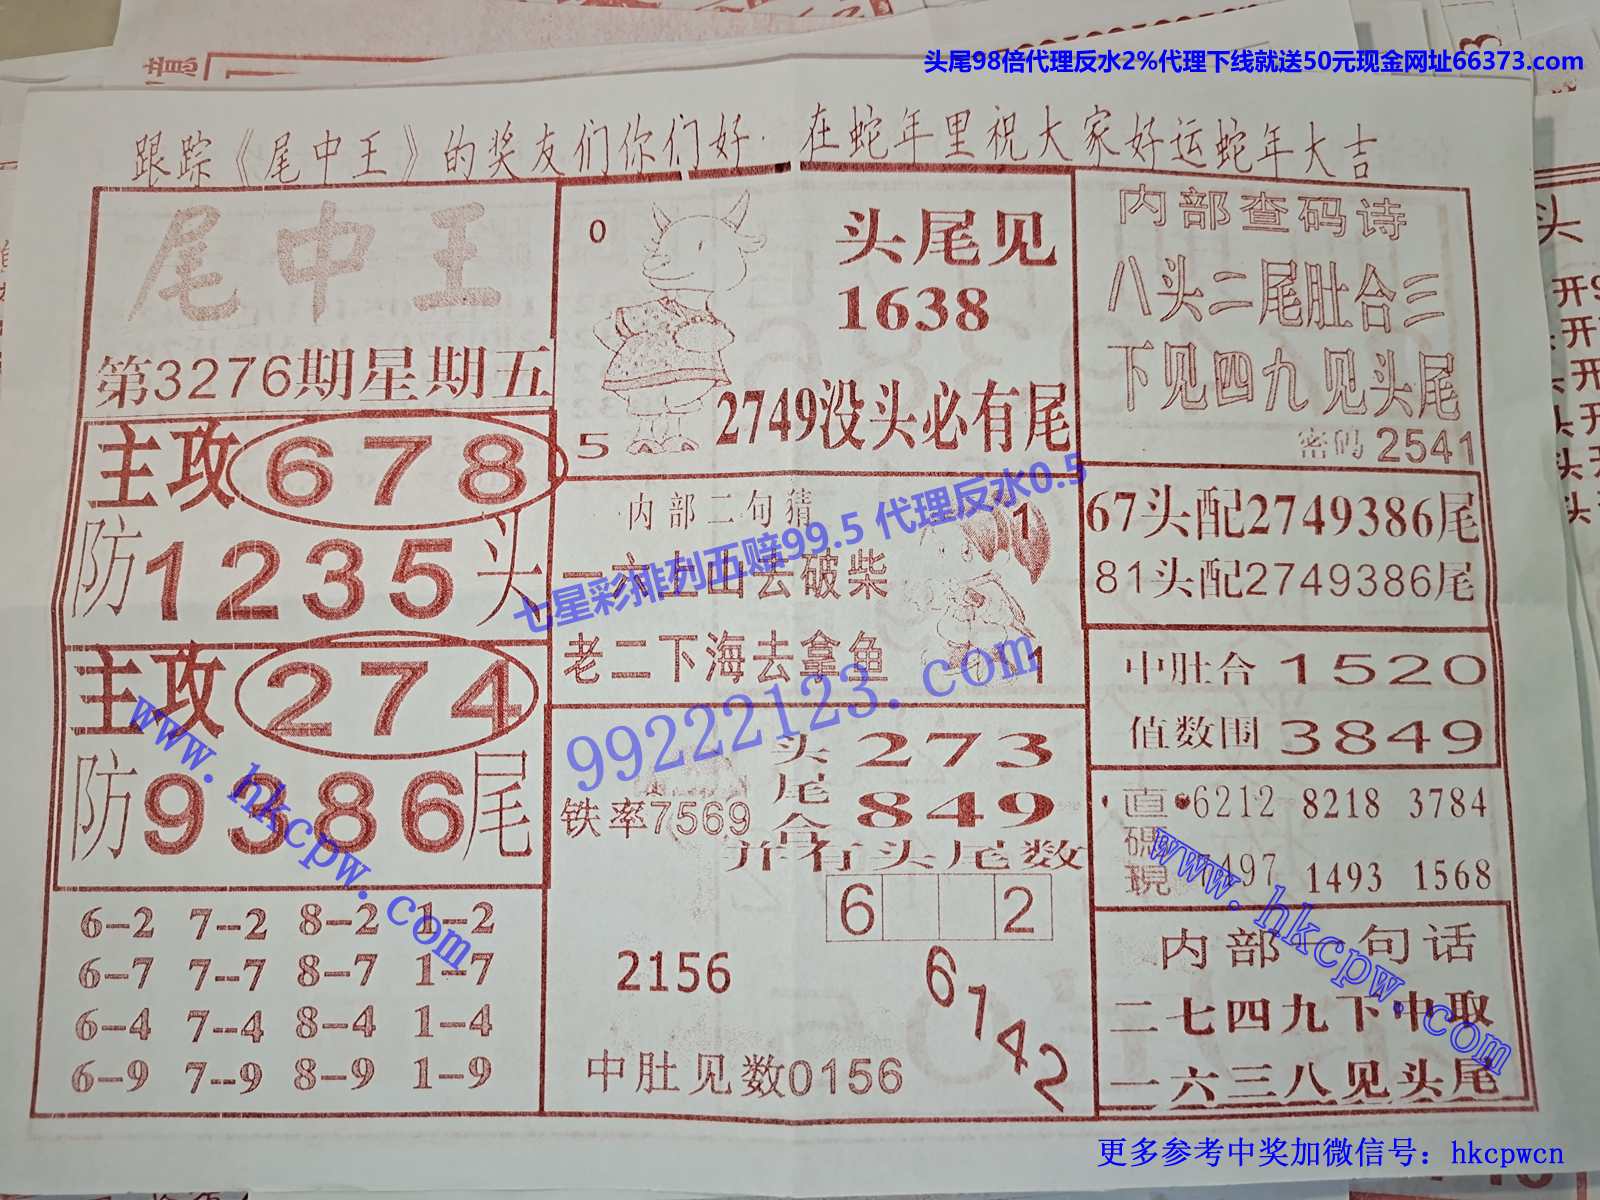 头尾98倍代理反水2%代理下线就送50元现金网址66373.com
跟踪《尾中王》的奖友们你们好.在蛇年里祝大家好运蛇年大吉
尾中王
第3276期星期五
主攻678
防1235头
主攻274
防9386尾
6--2 7--2 8--2 1--2
6--7 7--7 8--7 1--7
6--4 7--4 8--4 1--4
6--9 7--9 8--9 1--9
0
5
头尾见
1638
2749没头必有尾
内部二句猜
一六上山去破柴
老二下海去拿鱼
1
1
七星彩排列五赔99.5 代理反水0.5
99222123.com
铁率7569
头尾合
273
849
并有头尾数
6 2
2156
6142
中肚见数0156
内部查码诗
八头二尾肚合三
下见四九见头尾
密码2541
67头配2749386尾
81头配2749386尾
中肚合1520
值数围3849
直碼現
6212 8218 3784
497 1493 1568
内部一句话
二七四九下中取
一六三八见头尾
www.hkcpw.com
www.hkcpw.com
更多参考中奖加微信号：hkcpwcn